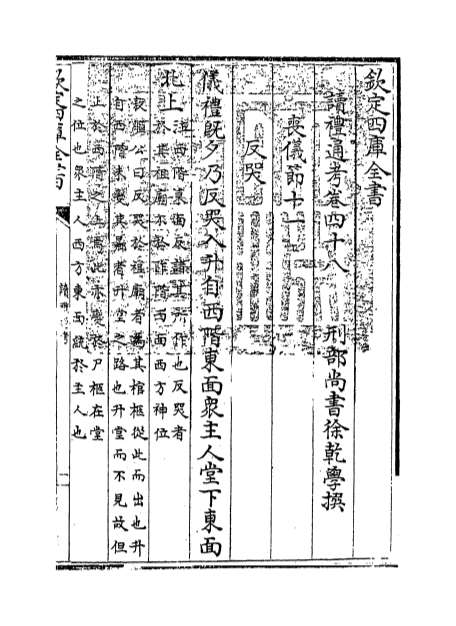 欽定四庫全書
讀禮通考卷四十八 刑部尚書徐乾學撰
喪儀節十一
反哭
儀禮既夕乃反哭入升自西階東面衆主人堂下東面
北上
注西階東面反諸其所作也反哭者
於其祖廟不於阼階西面西方神位
敖繼公曰反哭於祖廟者為其棺柩從此而出也升
自西階未變其 者升堂之路也升堂而不見故但
止於西階之上焉此 於尸柩在堂
之位也衆主人西方東面統於主人也
欽定四庫全書
讀禮通考
一